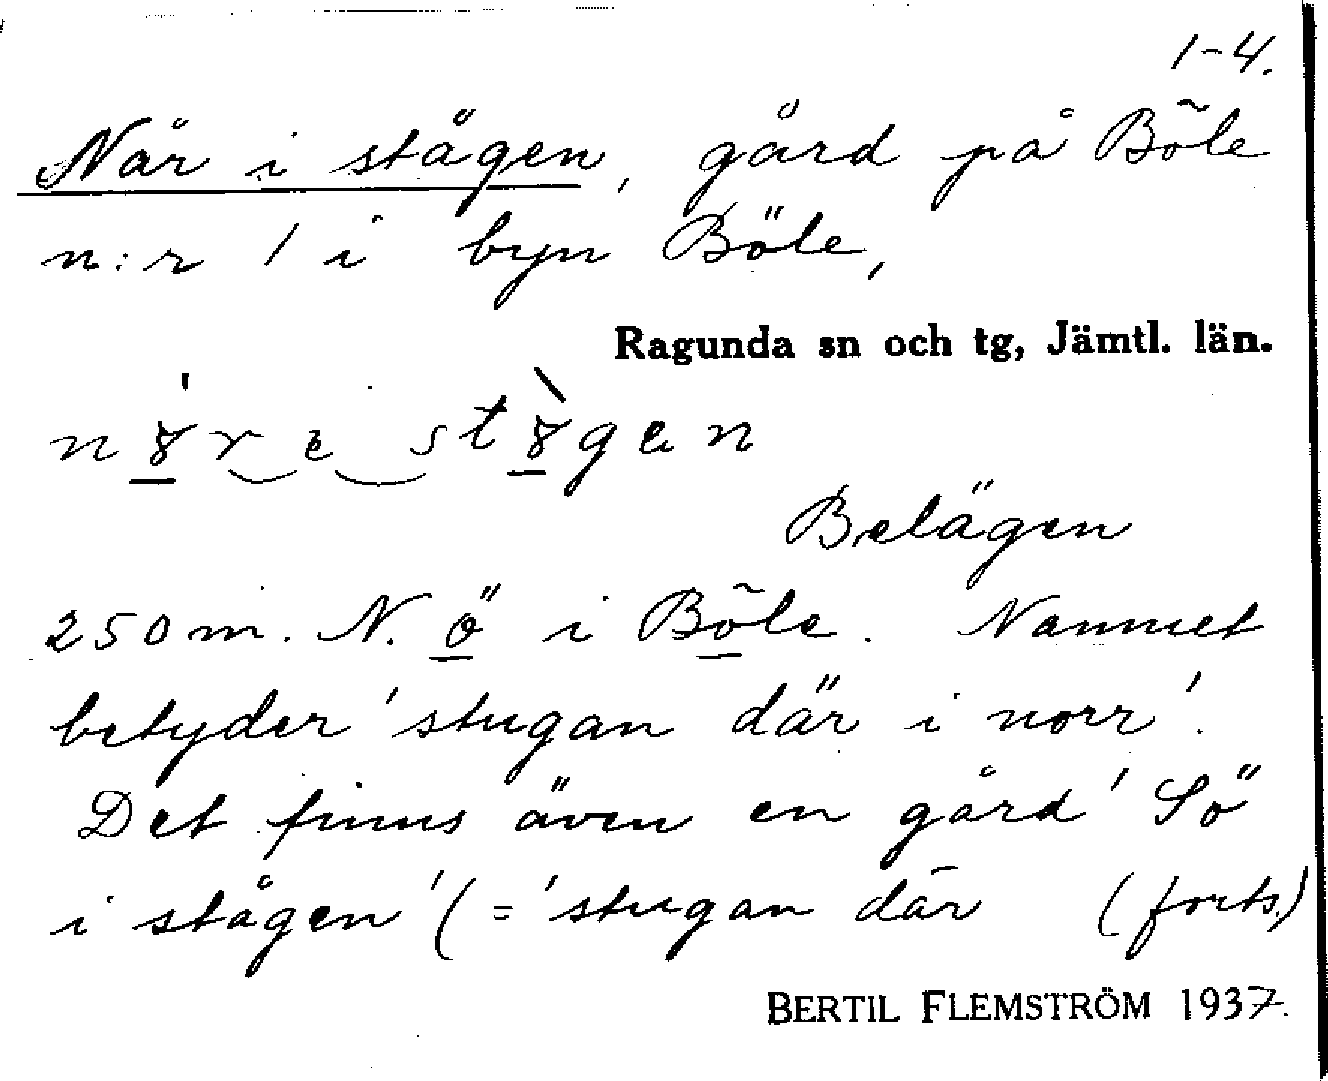 1-4.
Når i stågen, gård på Böle
n:r 1 i byn Böle,
Ragunda sn och tg, Jämtl. län.
Belägen
250 m. N. Ö i Böle. Namnet
betyder 'stugan där i norr'.
Det finns även en gård 'Sö
i stågen' (= 'stugan där (forts.)
BERTIL FLEMSTRÖM 1937.